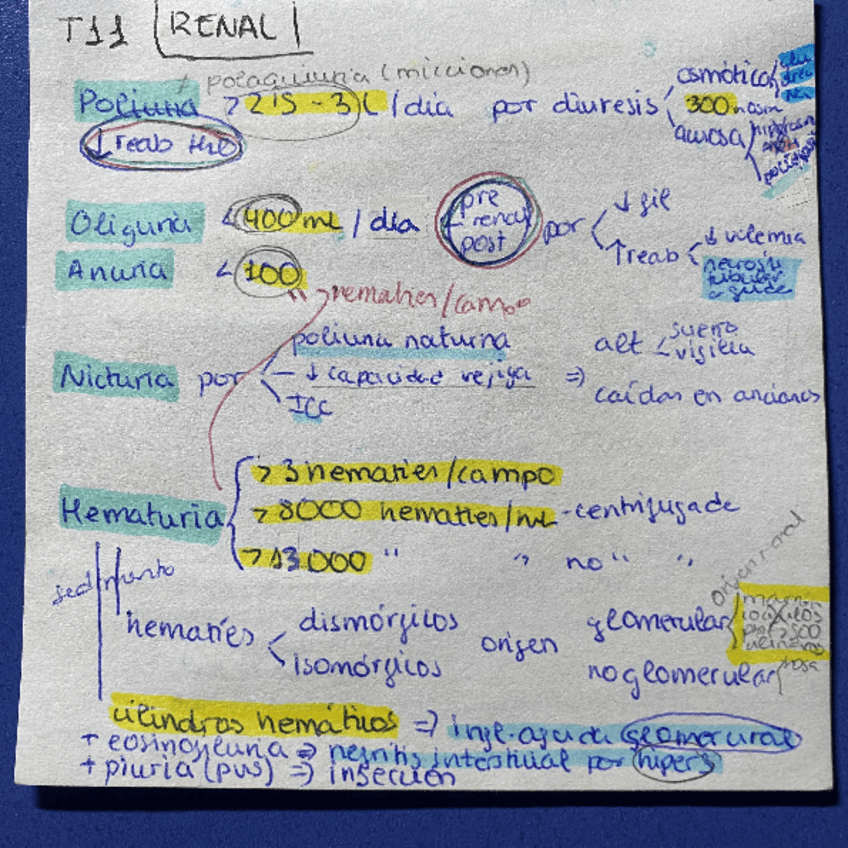 T11 RENAL
+ polaquiuria (micciones)
Poliuria > 2'5 - 3L / día por diuresis
osmótica
300 mosm
acuosa
↓ reab H2O
Oliguria < 400 mL / día
pre
renal
post
por ↓ fil
↑ reab
↓ volemia
necrosis
tubular
aguda
Anuria < 100 "
hematies/campo
Nicturia por
poliuria noturna
↓ capacidad vejiga ⇒
ICC
alt
sueño
vigilia
caídas en ancianos
Hematuria
> 3 hematíes/campo
> 8000 hematíes/mL - centrifugado
> 13000 " " no " "
sedimento
hematíes
dismórficos
isomórficos
origen
glomerular
no glomerular
origen renal
cilindros hemáticos ⇒ infl. aguda glomerural
+ eosinofiluria ⇒ nefritis intersticial por hipers
+ piuria (pus) ⇒ infección